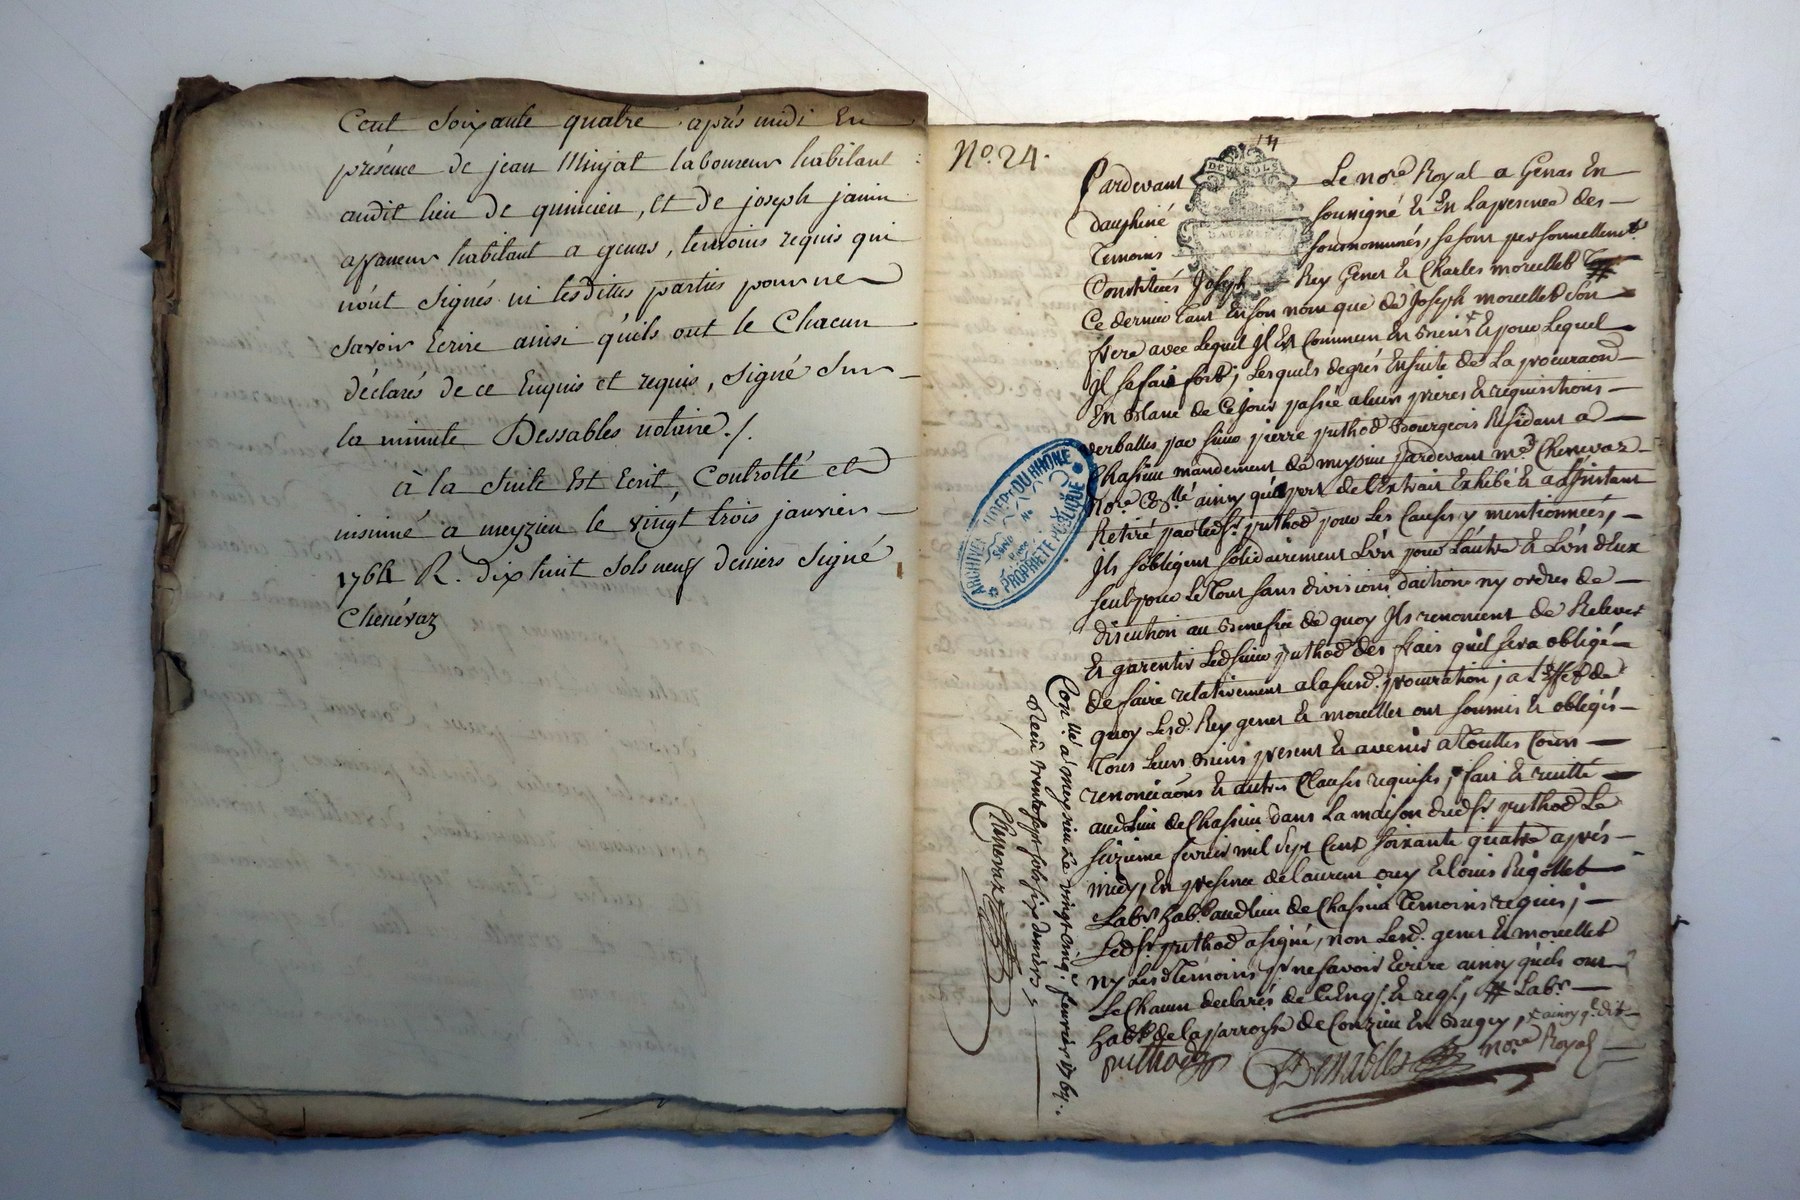 Cent soixante quatre après midi En
présence de jean Minjat laboureur habitant
audit lieu de quincieu, et de joseph janin
affaneur habitant a genas, temoins requis qui
n'ont signés ni lesdittes parties pour ne
savoir Ecrire ainsi qu'ils ont le Chacun
déclarés de ce Enquis et requis, signé sur
la minute Dessables notaire./.
à la suite Est Ecrit, Controllé et
insinué a meyzieu le vingt trois janvier
1764 R. dix huit sols neuf deniers signé
Chenévaz
No. 24.
14
Pardevant Le no.re Royal a Genas En
dauphiné soussigné & En La presence des
Temoins sousnommés, se sont personnellem.t
Constitués Joseph Rey Genet & Charles morellet #
Ce dernier tant En son nom que de Joseph morellet son
frere avec Lequel Jl Est Commun En Biens & pour Lequel
Jl se fait fort, Lesquels de grés En suite de La procuraon
En Blanc de Ce jour passée a leurs prieres & requisitions
verballes par sieur pierre puthod Bourgeois Residant a
Chassieu mandement de meyzieu pardevant m.e Chenevaz
No.re ainsy qu'apert de l'Extrait Exhibé & a l'instant
Retiré par led.sr puthod pour Les Causes y mentionnées,
Jls s'obligent solidairement L'ûn pour L'autre & L'ûn d'Eux
seul pour Le Tout sans division d'action ny ordre de
discution au Benefice de quoy Jls renoncent de Relever
& garentir Led sieur puthod des frais qu'il sera obligé
de faire relativement a la susd. procuration, a L'effet de
quoy Lesd. Rey genet & morellet ont soumis & obligés
Tous Leurs Biens present & avenir a Touttes Cours
renonciaons & autres Clauses requises, fait & recitté
aud lieu de Chassieu dans La maison dud sr puthod Le
seizieme fevrier mil sept Cent soixante quatre après
midy, En presence de laurent & louis Rigollet
Lab.rs hab. aud lieu de Chassieu Temoins requis,
Led sr puthod a signé, non Lesd. genet & morellet
ny Les d Temoins p.r ne savoir Ecrire ainsy qu'ils ont
Le Chacun declarés de Ce Enq.s & req.s, # Lab.rs
hab.ts de la parroisse de En Bugey, ainsy q.l dit
puthod Dessables no.re Royal
Con.llé a meyzieu Le vingt Cinq fevrier 1764.
Reçu trente sept sols six deniers
Chenevaz
ARCHIVES DU DEP.t DU RHÔNE
PROPRIÉTÉ PUBLIQUE